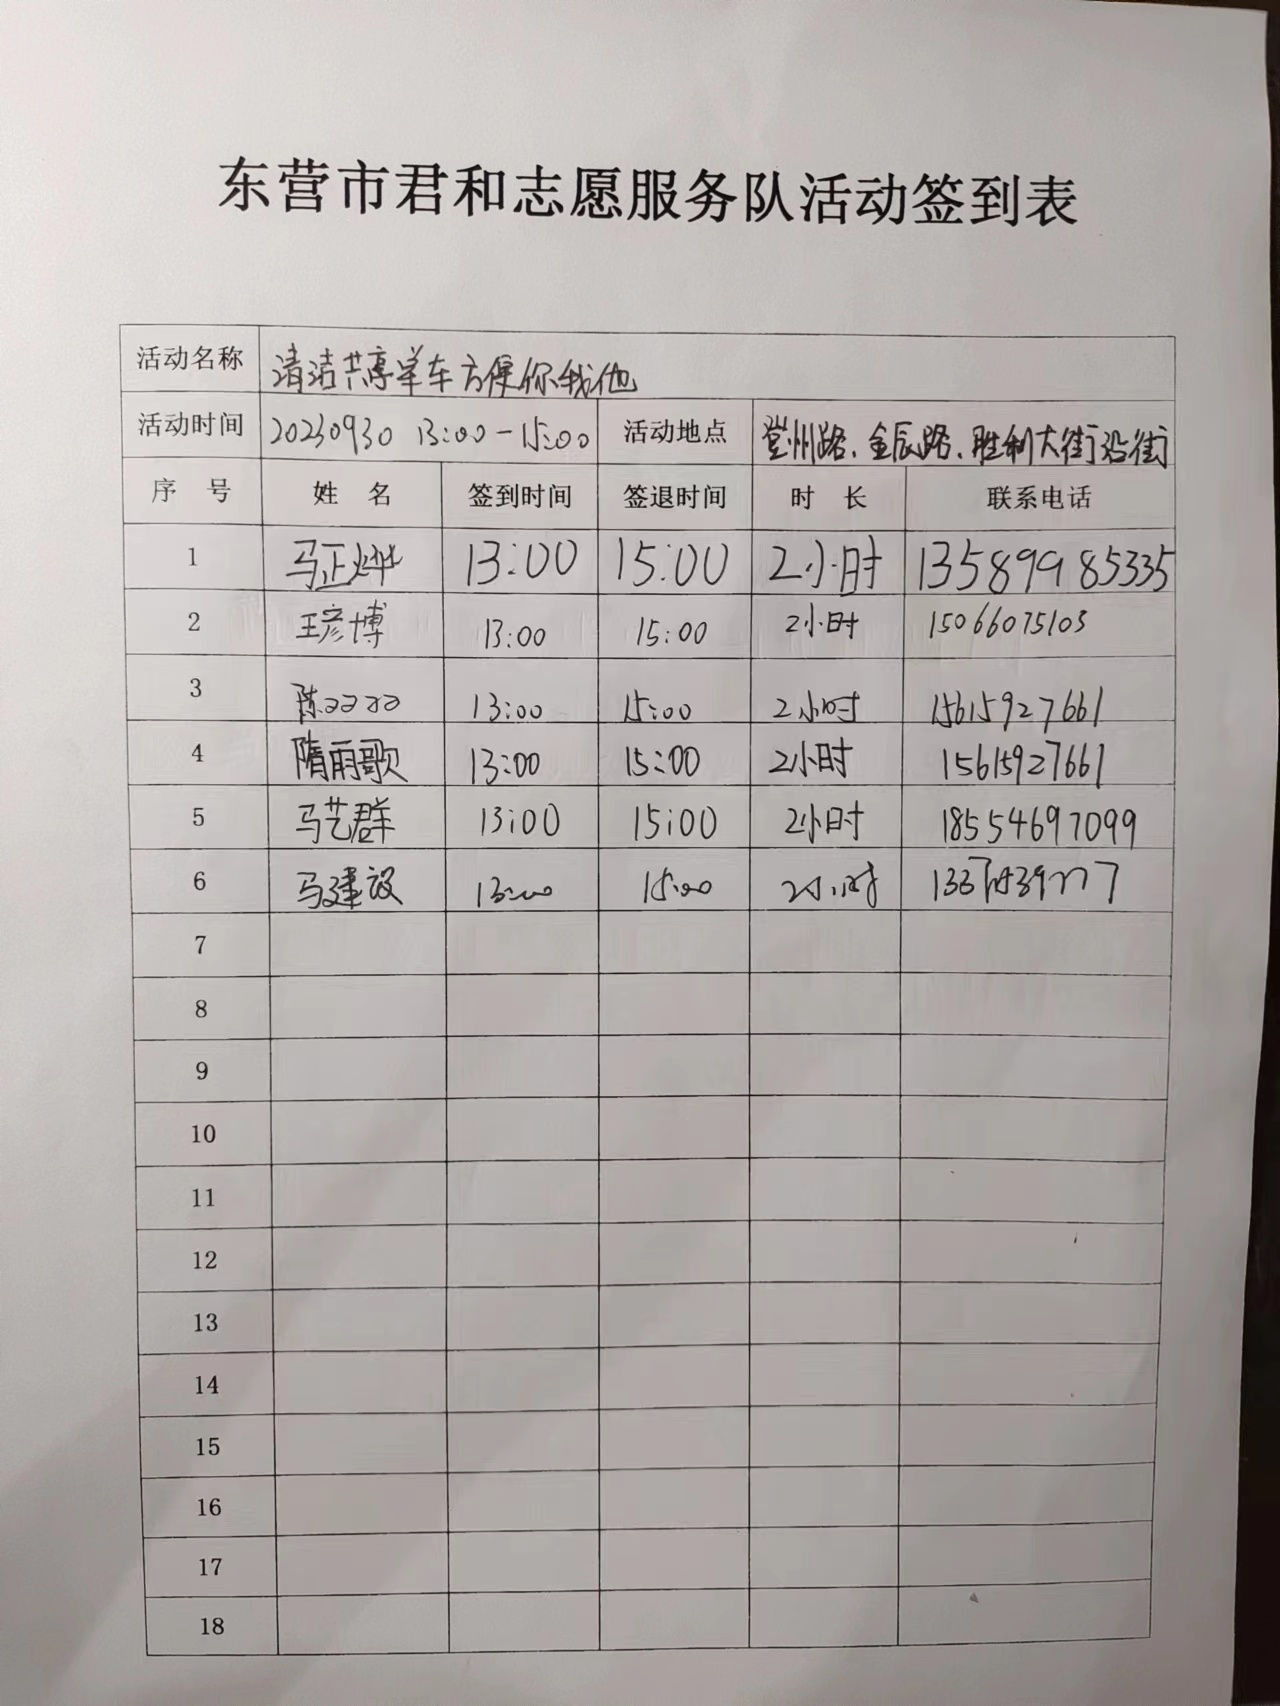 东营市君和志愿服务队活动签到表
活动名称 清洁共享单车方便你我他
活动时间 20230930 13:00-15:00 活动地点 登州路、金辰路、胜利大街沿街
序 号 姓 名 签到时间 签退时间 时 长 联系电话
1 马正烨 13:00 15:00 2小时 13589985335
2 王彦博 13:00 15:00 2小时 15066075103
3 陈 13:00 15:00 2小时 15615927661
4 隋雨歌 13:00 15:00 2小时 15615927661
5 马艺群 13:00 15:00 2小时 18554697099
6 马建设 13:00 15:00 2小时
7
8
9
10
11
12
13
14
15
16
17
18